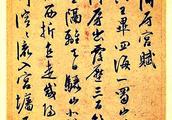 阿房宮賦
六王畢四海一蜀山
兀阿房出覆壓三百餘
里隔離天日驪山北
構而西折直走咸陽
二川溶溶流入宮牆